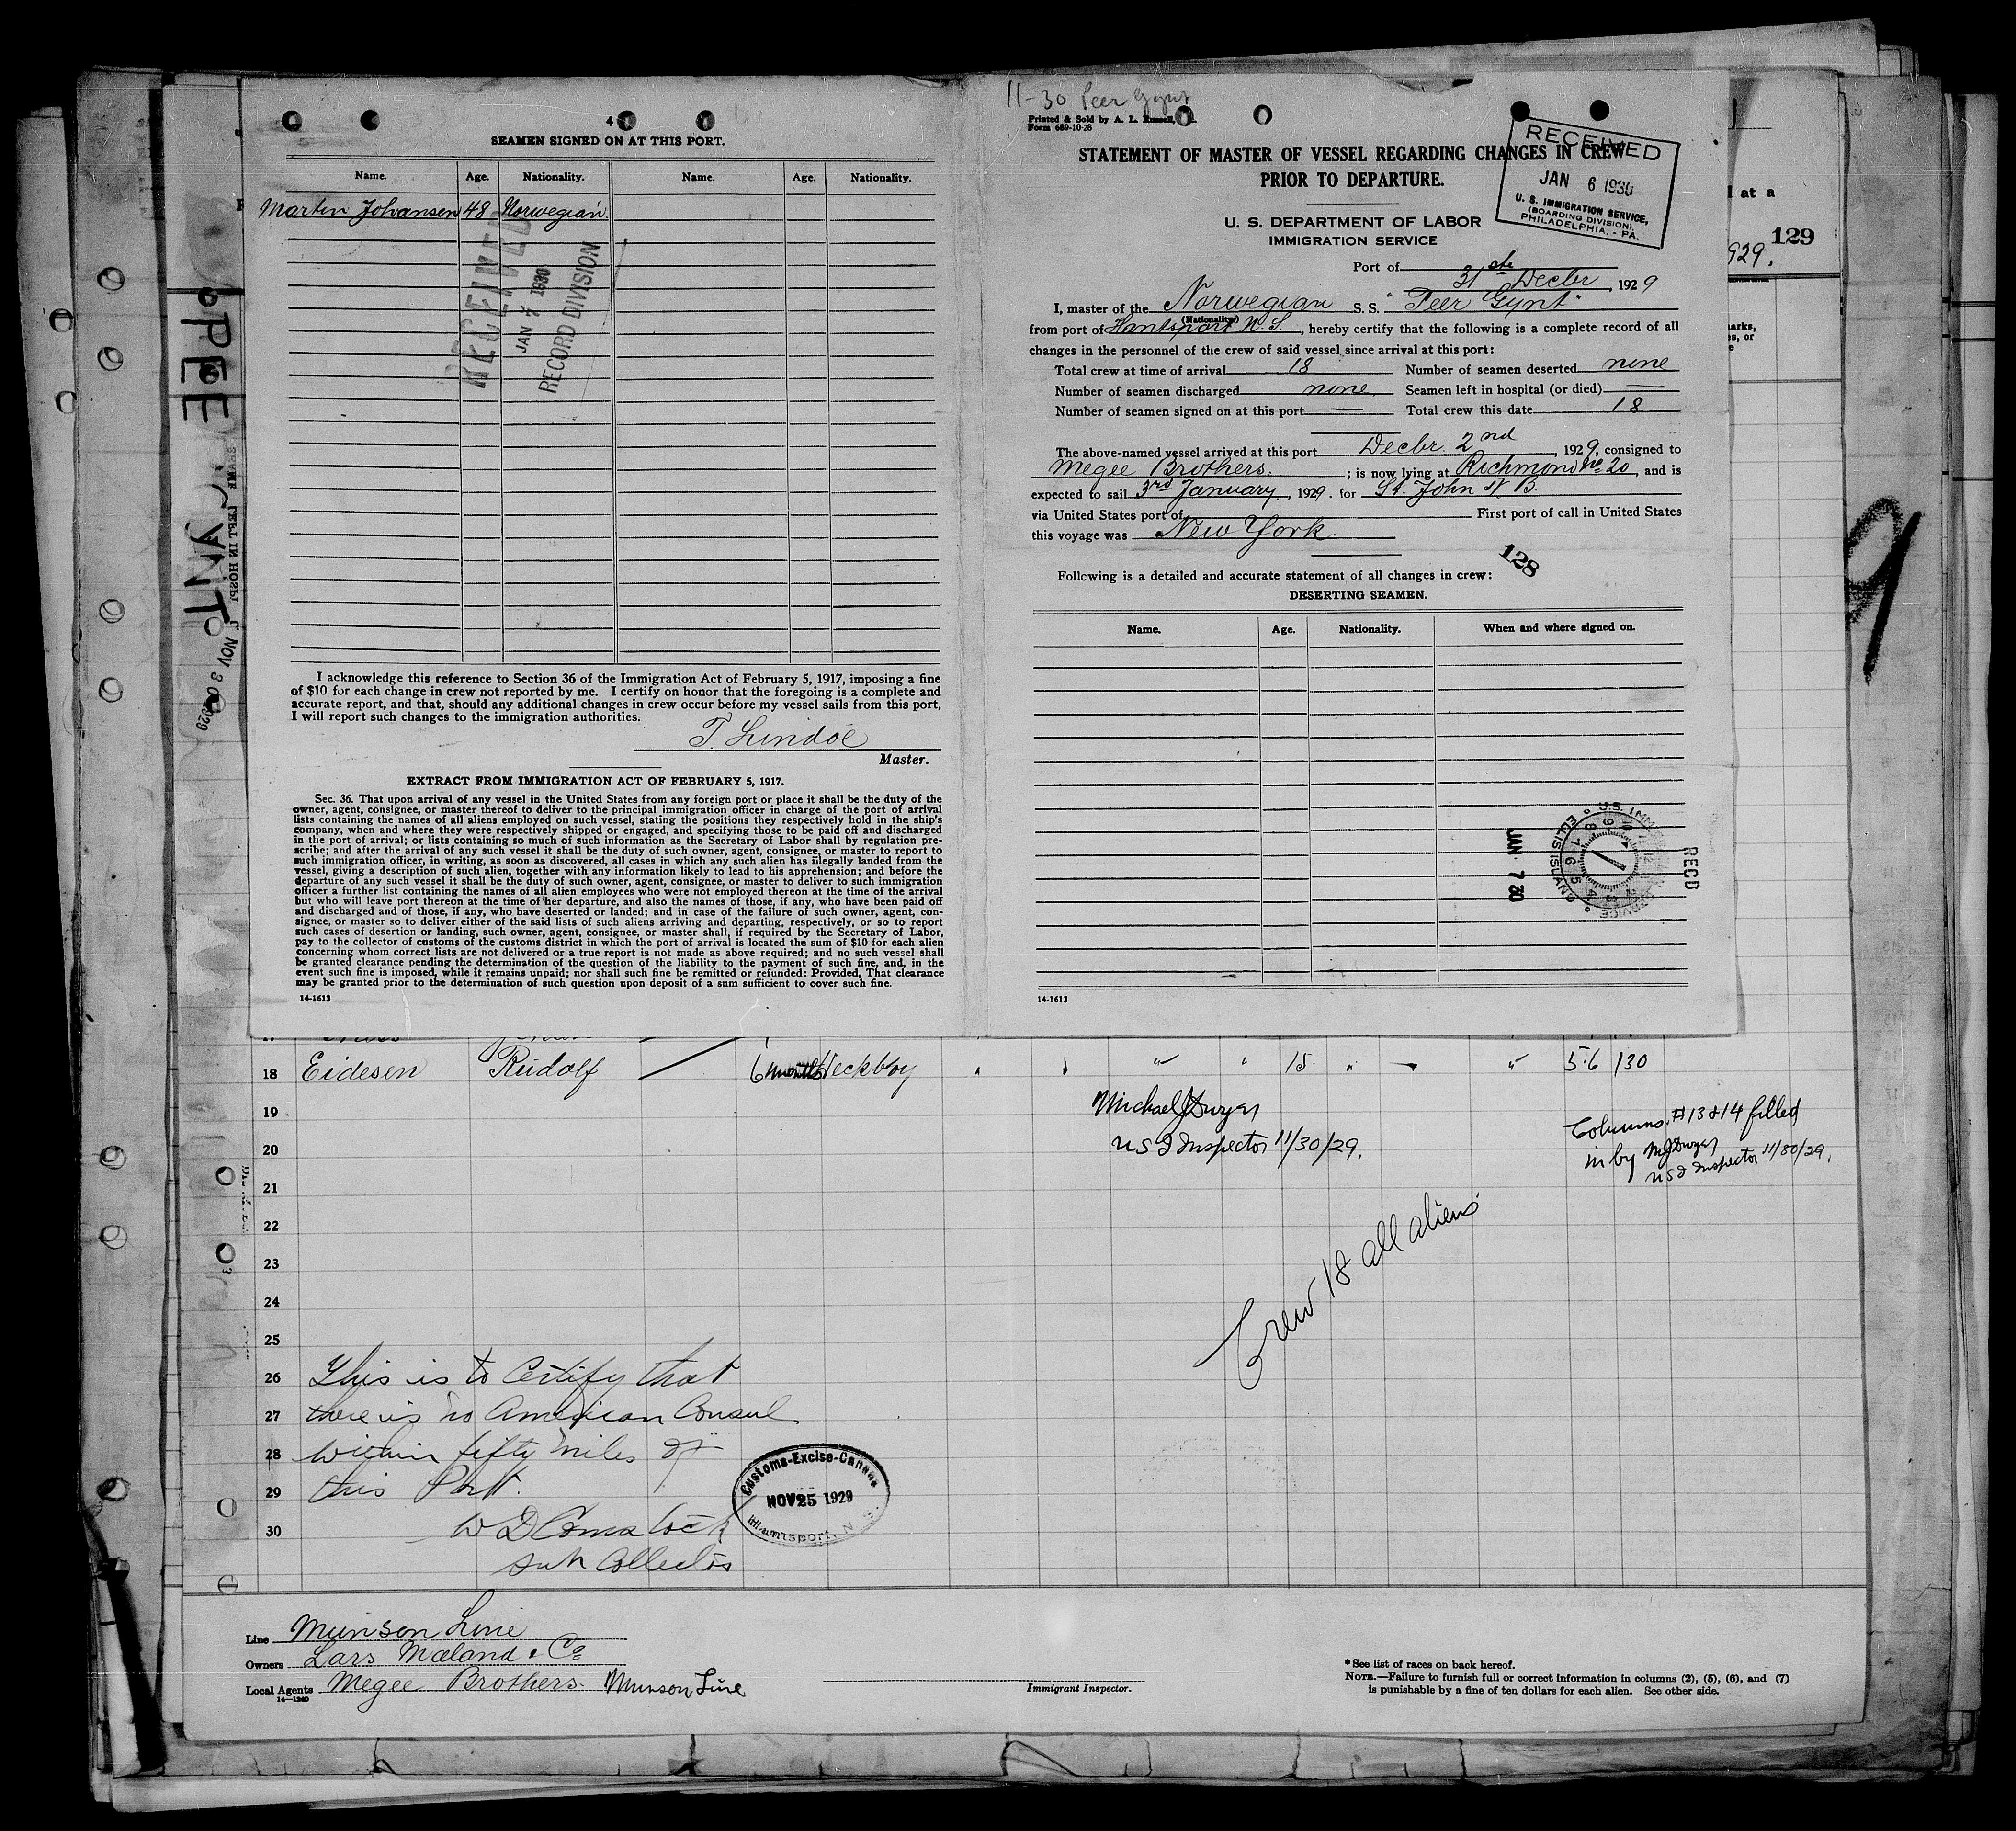 4
SEAMEN SIGNED ON AT THIS PORT.
Name. Age. Nationality. Name. Age. Nationality.
Martin Johansen 48 Norwegian
RECEIVED
JAN 7 1930
RECORD DIVISION
I acknowledge this reference to Section 36 of the Immigration Act of February 5, 1917, imposing a fine
of $10 for each change in crew not reported by me. I certify on honor that the foregoing is a complete and
accurate report, and that, should any additional changes in crew occur before my vessel sails from this port,
I will report such changes to the immigration authorities.
T. Lindöe
Master.
EXTRACT FROM IMMIGRATION ACT OF FEBRUARY 5, 1917.
Sec. 36. That upon arrival of any vessel in the United States from any foreign port or place it shall be the duty of the
owner, agent, consignee, or master thereof to deliver to the principal immigration officer in charge of the port of arrival
lists containing the names of all aliens employed on such vessel, stating the positions they respectively hold in the ship's
company, when and where they were respectively shipped or engaged, and specifying those to be paid off and discharged
in the port of arrival; or lists containing so much of such information as the Secretary of Labor shall by regulation pre-
scribe; and after the arrival of any such vessel it shall be the duty of such owner, agent, consignee, or master to report to
such immigration officer, in writing, as soon as discovered, all cases in which any such alien has illegally landed from the
vessel, giving a description of such alien, together with any information likely to lead to his apprehension; and before the
departure of any such vessel it shall be the duty of such owner, agent, consignee, or master to deliver to such immigration
officer a further list containing the names of all alien employees who were not employed thereon at the time of the arrival
but who will leave port thereon at the time of her departure, and also the names of those, if any, who have been paid off
and discharged and of those, if any, who have deserted or landed; and in case of the failure of such owner, agent, con-
signee, or master so to deliver either of the said lists of such aliens arriving and departing, respectively, or so to report
such cases of desertion or landing, such owner, agent, consignee, or master shall, if required by the Secretary of Labor,
pay to the collector of customs of the customs district in which the port of arrival is located the sum of $10 for each alien
concerning whom correct lists are not delivered or a true report is not made as above required; and no such vessel shall
be granted clearance pending the determination of the question of the liability to the payment of such fine, and, in the
event such fine is imposed, while it remains unpaid; nor shall such fine be remitted or refunded: Provided, That clearance
may be granted prior to the determination of such question upon deposit of a sum sufficient to cover such fine.
14-1613
11-30 Peer Gynt
Printed & Sold by A. L. Russell,
Form 689-10-28
STATEMENT OF MASTER OF VESSEL REGARDING CHANGES IN CREW
PRIOR TO DEPARTURE.
RECEIVED
JAN 6 1930
U. S. IMMIGRATION SERVICE,
(BOARDING DIVISION).
PHILADELPHIA, - PA.
U. S. DEPARTMENT OF LABOR
IMMIGRATION SERVICE
Port of
31ste Decbr , 1929
I, master of the Norwegian S. S. "Peer Gynt"
(Nationality)
from port of Hantsport N. S. , hereby certify that the following is a complete record of all
changes in the personnel of the crew of said vessel since arrival at this port:
Total crew at time of arrival 18 Number of seamen deserted none
Number of seamen discharged none. Seamen left in hospital (or died) —
Number of seamen signed on at this port — Total crew this date 18
The above-named vessel arrived at this port Decbr. 2nd , 1929, consigned to
Megee Brothers. ; is now lying at Richmond No 20 , and is
expected to sail 3rd January , 1929. for St. John N B.
via United States port of First port of call in United States
this voyage was New York.
128
Following is a detailed and accurate statement of all changes in crew:
DESERTING SEAMEN.
Name. Age. Nationality. When and where signed on.
U.S. IMM SERVICE
ELLIS ISLAND
JAN 7 30
RECD
14-1613
d at a
129
929.
arks,
s, or
e
PEE
GYNT
NOV 30 1929
LEFT IN HOSPI
9
18 Eidesen Rudolf 6 months Deckboy " " 15. " " 5.6 130
19
20
21
22
23
24
25
26
27
28
29
30
Michael J Dwyer
U S I Inspector 11/30/29.
Columns #13 & 14 filled
in by MJ Dwyer
USI Inspector 11/30/29.
Crew 18 all aliens
This is to Certify that
there is no American Consul
within fifty miles of
this Port.
W D Comstock
Sub Collector
Customs-Excise-Canada
NOV 25 1929
Hantsport, N. S.
Line Munson Line
Owners Lars Mæland & Co
Local Agents Megee Brothers. Munson Line
14-1240
Immigrant Inspector.
*See list of races on back hereof.
NOTE.—Failure to furnish full or correct information in columns (2), (5), (6), and (7)
is punishable by a fine of ten dollars for each alien. See other side.